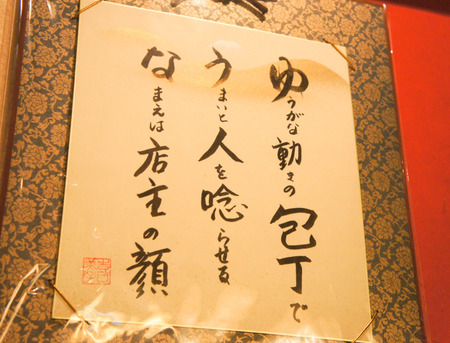 ゆうがな動きの包丁で
うまいと人を唸らせる
なまえは店主の顔